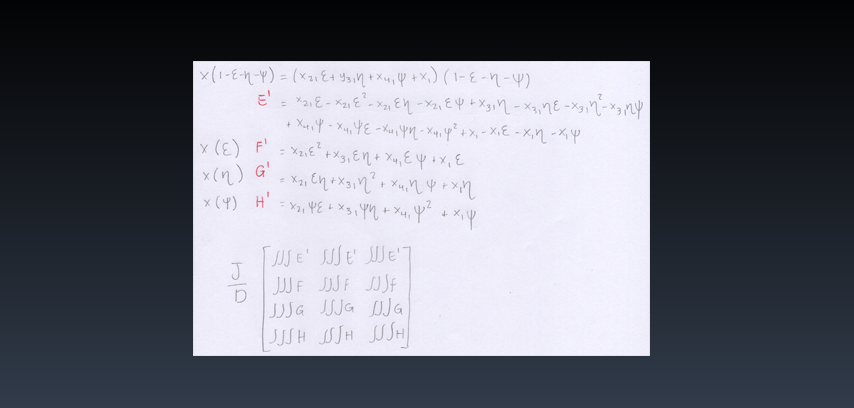 x(1-ε-η-ψ) = (x₂₁ε + y₃₁η + x₄₁ψ + x₁) (1-ε-η-ψ)
E' = x₂₁ε - x₂₁ε² - x₂₁εη - x₂₁εψ + x₃₁η - x₃₁ηε - x₃₁η² - x₃₁ηψ
+ x₄₁ψ - x₄₁ψε - x₄₁ψη - x₄₁ψ² + x₁ - x₁ε - x₁η - x₁ψ
x(ε) F' = x₂₁ε² + x₃₁εη + x₄₁εψ + x₁ε
x(η) G' = x₂₁εη + x₃₁η² + x₄₁ηψ + x₁η
x(ψ) H' = x₂₁ψε + x₃₁ψη + x₄₁ψ² + x₁ψ
J/D
∭E' ∭E' ∭E'
∭F ∭f ∭f
∭G ∭G ∭G
∭H ∭H ∭H